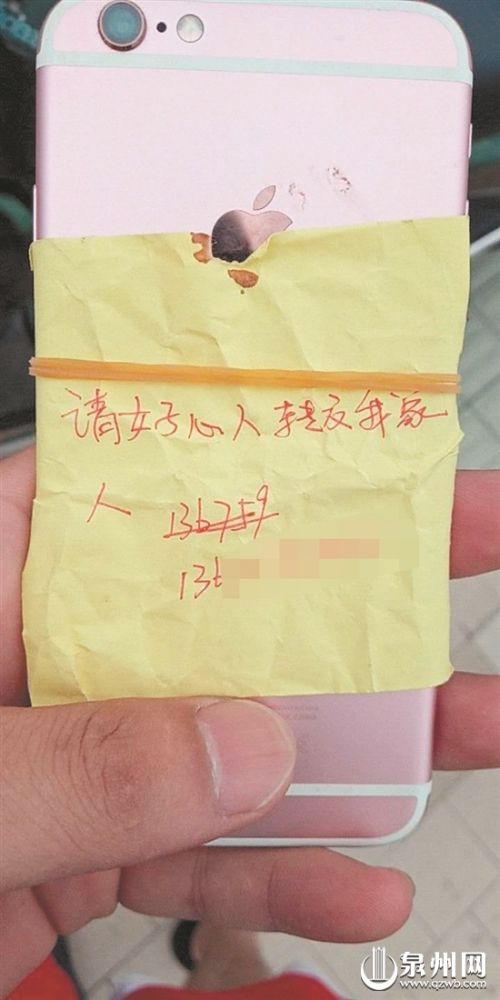 请好心人转交我家
人 136759
136
泉州网
www.qzwb.com